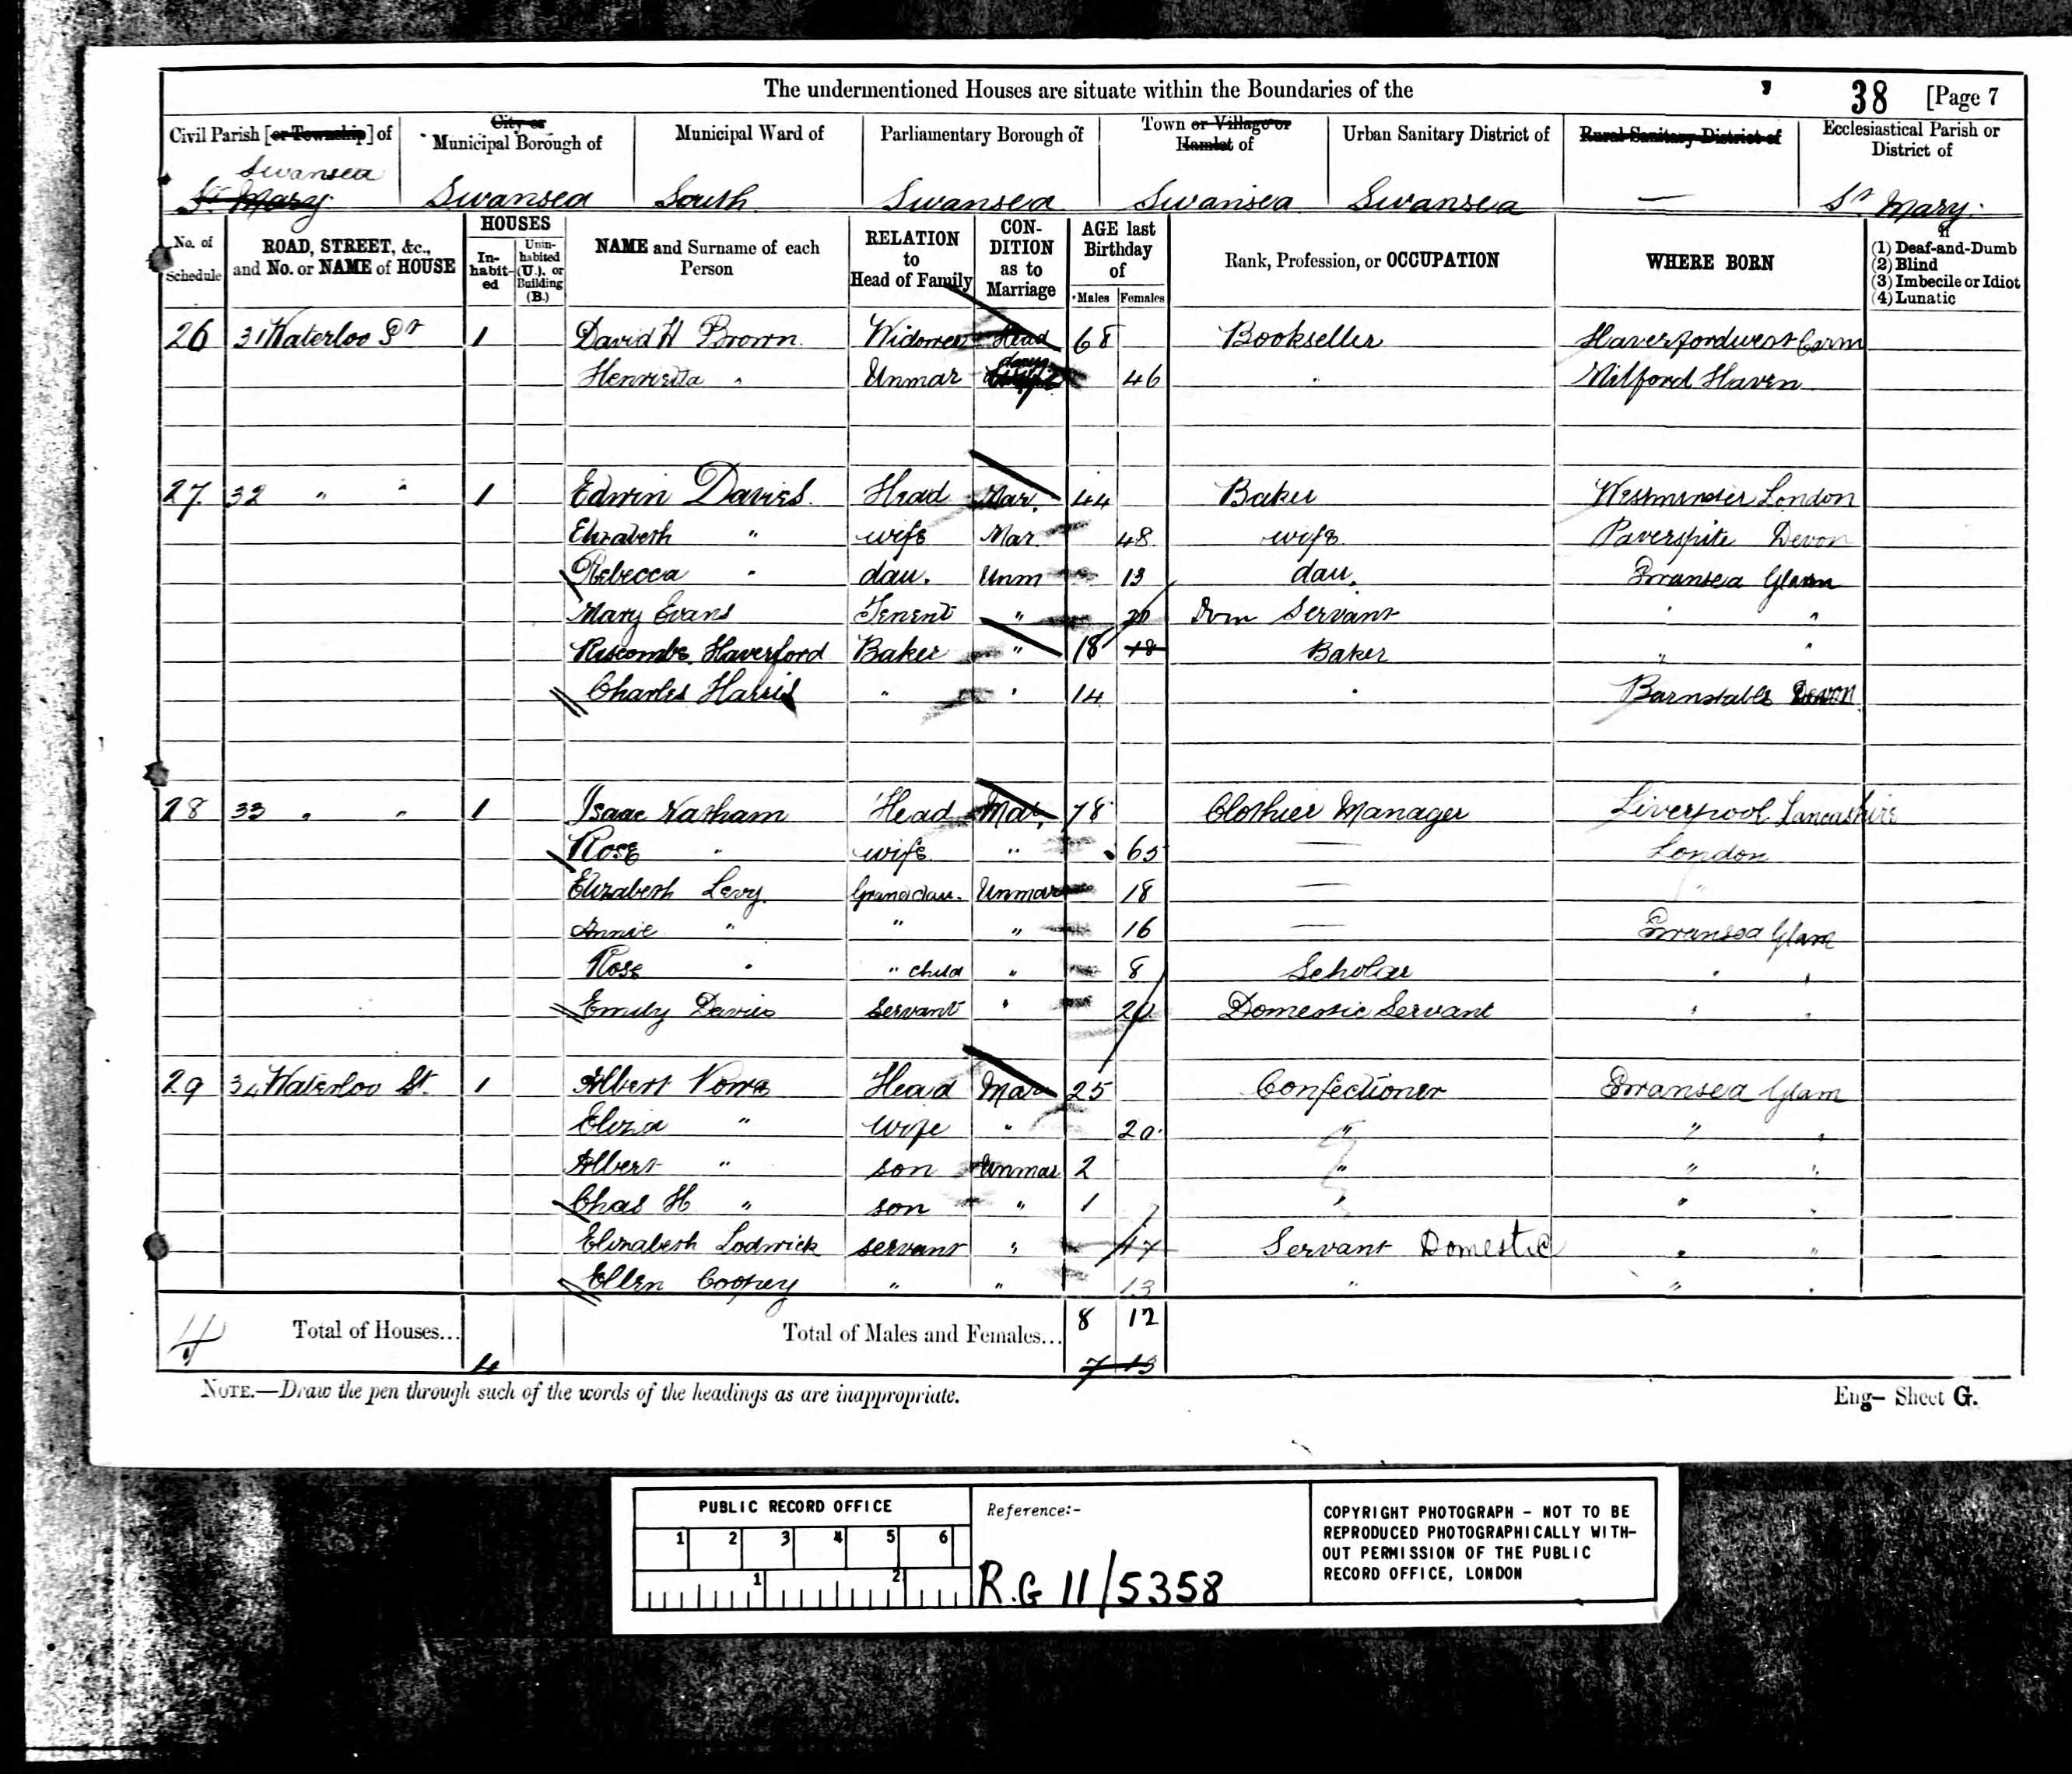 The undermentioned Houses are situate within the Boundaries of the 38 [Page 7
Civil Parish [or Township] of City or Municipal Borough of Municipal Ward of Parliamentary Borough of Town or Village or Hamlet of Urban Sanitary District of Rural Sanitary District of Ecclesiastical Parish or District of
Swansea
St Mary Swansea South Swansea Swansea Swansea — St Mary
No. of Schedule ROAD, STREET, &c., and No. or NAME of HOUSE HOUSES In-habit-ed Unin-habited (U.), or Building (B.) NAME and Surname of each Person RELATION to Head of Family CON-DITION as to Marriage AGE last Birthday of Males Females Rank, Profession, or OCCUPATION WHERE BORN If (1) Deaf-and-Dumb (2) Blind (3) Imbecile or Idiot (4) Lunatic
26 31 Waterloo St 1 David H Brown Widower Head 68 Bookseller Haverfordwest Carm
Henrietta " Unmar dau 46 " Milford Haven
27 32 " " 1 Edwin Davies Head Mar. 44 Baker Westminster London
Elizabeth " wife Mar. 48 wife Devon
Rebecca " dau. Unm 13 dau. Swansea Glam
Mary Evans " 20 Dom Servant " "
Haverford Baker " 18 18 Baker " "
Charles Harris " " 14 " Barnstable Devon
28 33 " " 1 Isaac Natham Head Mar. 78 Clothier Manager Liverpool Lancashire
Rose " wife " 65 — London
Elizabeth Levy Grand dau. Unmar 18 — "
Annie " " " 16 — Swansea Glam
Rose " " child " 8 Scholar " "
Emily Davies servant " 20 Domestic Servant " "
29 34 Waterloo St. 1 Albert Head Mar 25 Confectioner Swansea Glam
Eliza " wife " 20 " " "
Albert " son Unmar 2 " " "
Chas H " son " 1 " " "
Elizabeth Lodwick servant " 17 Servant Domestic " "
Ellen " " 13 " " "
4 Total of Houses... 4 Total of Males and Females... 8 12
7 13
NOTE.—Draw the pen through such of the words of the headings as are inappropriate. Eng— Sheet G.
PUBLIC RECORD OFFICE
1 2 3 4 5 6
1 2
Reference:-
R.G 11/5358
COPYRIGHT PHOTOGRAPH - NOT TO BE
REPRODUCED PHOTOGRAPHICALLY WITH-
OUT PERMISSION OF THE PUBLIC
RECORD OFFICE, LONDON